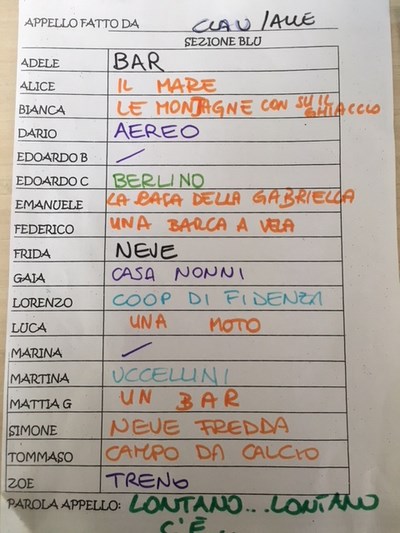 APPELLO FATTO DA CLAU/ALLE
SEZIONE BLU
ADELE BAR
ALICE IL MARE
BIANCA LE MONTAGNE CON SU IL GHIACCIO
DARIO AEREO
EDOARDO B /
EDOARDO C BERLINO
EMANUELE LA CASA DELLA GABRIELLA
FEDERICO UNA BARCA A VELA
FRIDA NEVE
GAIA CASA NONNI
LORENZO COOP DI FIDENZA
LUCA UNA MOTO
MARINA /
MARTINA UCCELLINI
MATTIA G UN BAR
SIMONE NEVE FREDDA
TOMMASO CAMPO DA CALCIO
ZOE TRENO
PAROLA APPELLO: LONTANO...LONTANO
C'È